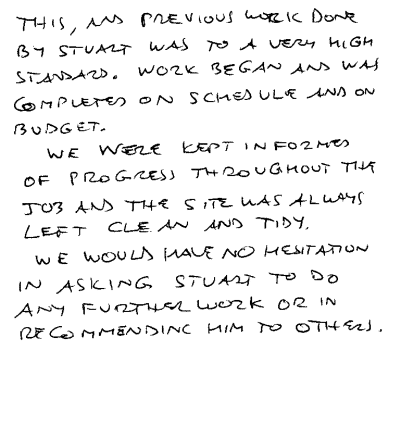 THIS, AND PREVIOUS WORK DONE
BY STUART WAS TO A VERY HIGH
STANDARD. WORK BEGAN AND WAS
COMPLETED ON SCHEDULE AND ON
BUDGET.
WE WERE KEPT INFORMED
OF PROGRESS THROUGHOUT THE
JOB AND THE SITE WAS ALWAYS
LEFT CLEAN AND TIDY.
WE WOULD HAVE NO HESITATION
IN ASKING STUART TO DO
ANY FURTHER WORK OR IN
RECOMMENDING HIM TO OTHERS.